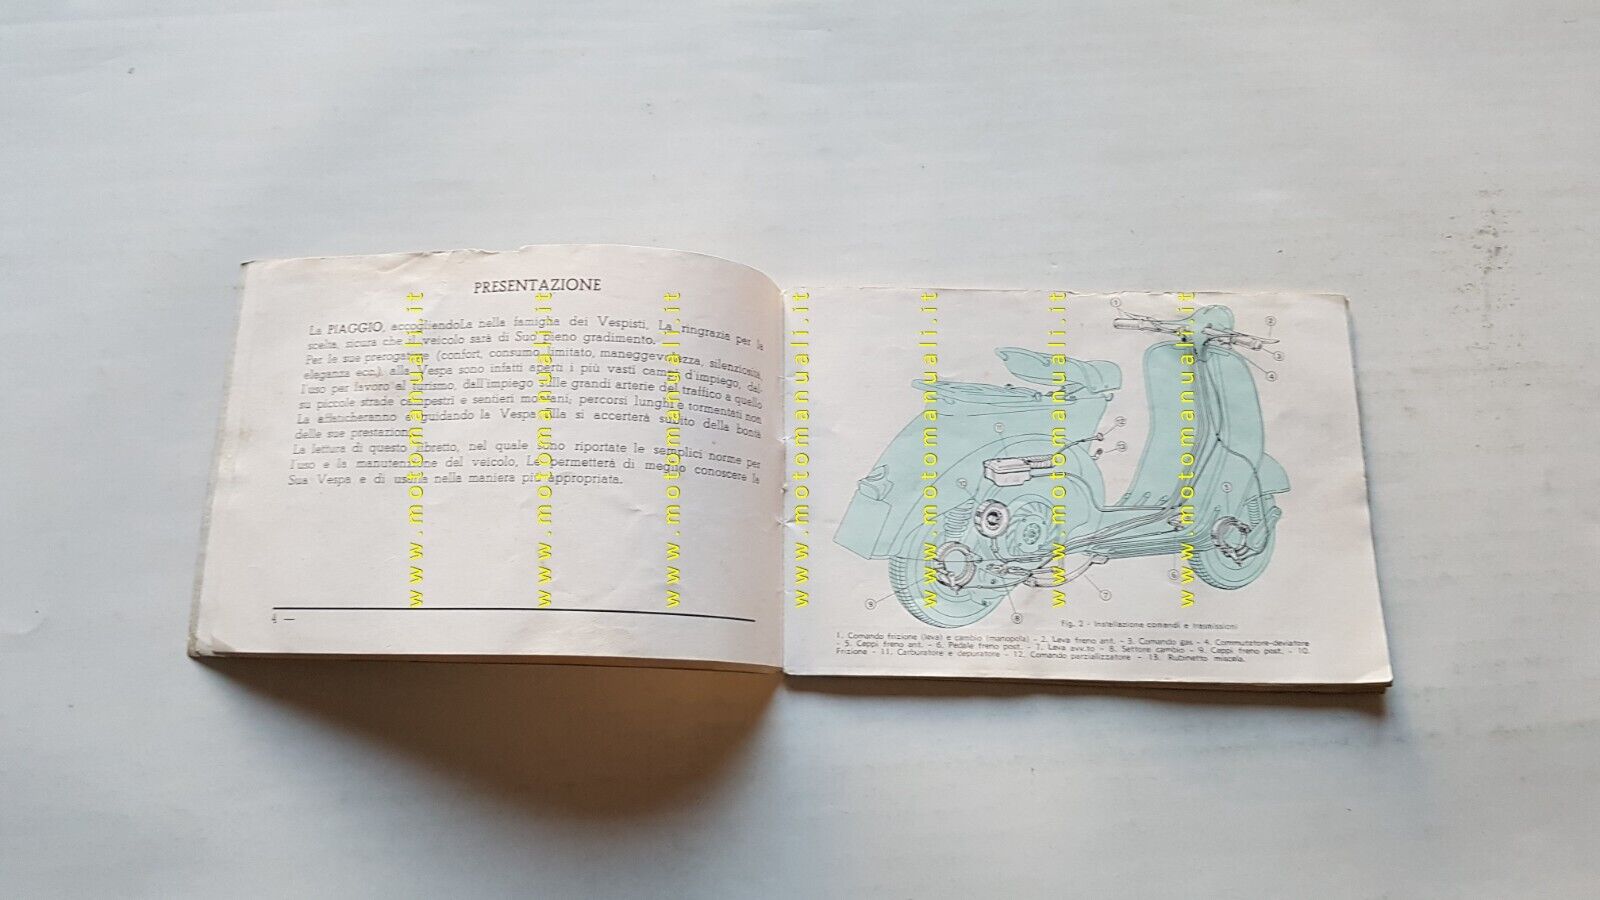 PRESENTAZIONE
La PIAGGIO, accogliendoLa nella famiglia dei Vespisti, La ringrazia per la
scelta, sicura che il veicolo sarà di Suo pieno gradimento.
Per le sue prerogative (confort, consumo limitato, maneggevolezza, silenziosità,
eleganza ecc.), alla Vespa sono infatti aperti i più vasti campi d'impiego, dal-
l'uso per lavoro al turismo, dall'impiego sulle grandi arterie del traffico a quello
su piccole strade campestri e sentieri montani; percorsi lunghi e tormentati non
La affaticheranno e guidando la Vespa Ella si accerterà subito della bontà
delle sue prestazioni.
La lettura di questo libretto, nel quale sono riportate le semplici norme per
l'uso e la manutenzione del veicolo, Le permetterà di meglio conoscere la
Sua Vespa e di usarla nella maniera più appropriata.
4 —
1
2
3
4
12
13
11
10
5
6
7
8
9
Fig. 2 - Installazione comandi e trasmissioni
1. Comando frizione (leva) e cambio (manopola) - 2. Leva freno ant. - 3. Comando gas - 4. Commutatore-deviatore
- 5. Ceppi freno ant. - 6. Pedale freno post. - 7. Leva avv.to - 8. Settore cambio - 9. Ceppi freno post. - 10.
Frizione - 11. Carburatore e depuratore - 12. Comando parzializzatore - 13. Rubinetto miscela.
www.motomanuali.it
www.motomanuali.it
www.motomanuali.it
www.motomanuali.it
www.motomanuali.it
www.motomanuali.it
www.motomanuali.it